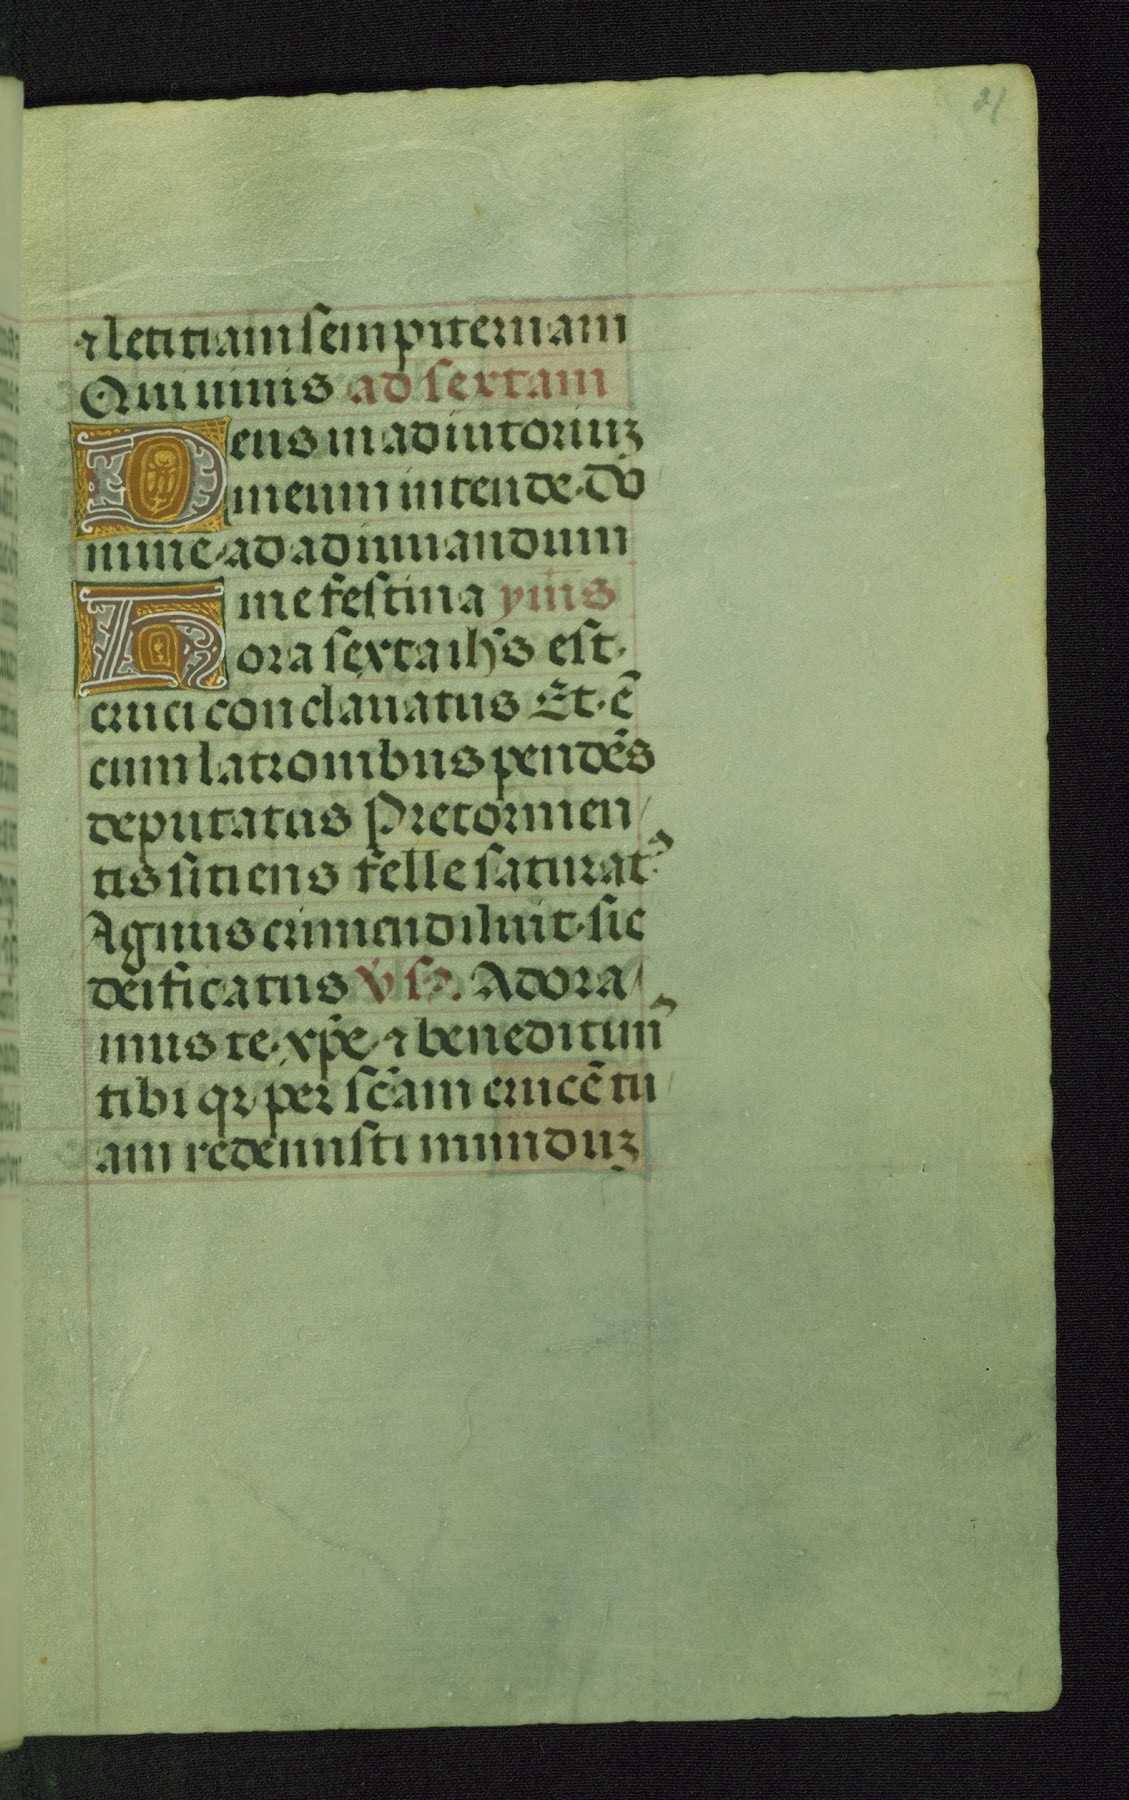 21
⁊ letitiam sempiternam
Qui uiuis ad sextam
Deus in adiutoriuꝫ
meum intende. Do
mine. ad adiuuandum
me festina ymˉs
Hora sexta ihˉs est.
cruci conclauatus Et. ē
cum latronibus pendēs
deputatus Pre tormen/
tis sitiens felle saturatꝰ.
Agnus crimen diluit. sic
deificatus v̇ Adora/
mus te. xp̄e. ⁊ beneditimꝰ
tibi qr per scām crucē tu/
am redemisti munduꝫ